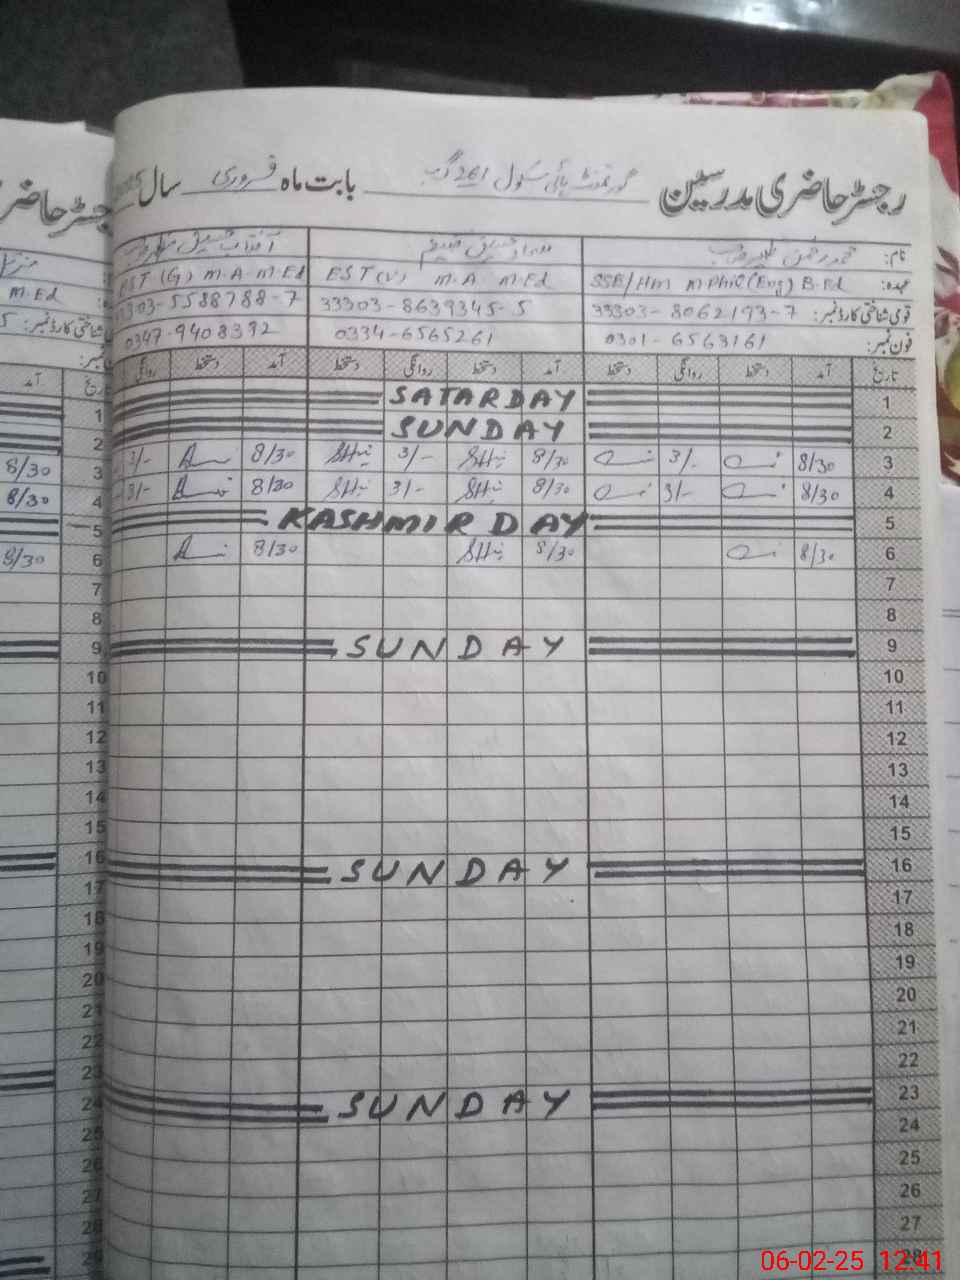 رجسٹر حاضری مدرسین گورنمنٹ ہائی سکول 261 گ ب بابت ماہ فروری سال
نام:
عہدہ: SSE/HM M Phil (Eng) B.Ed EST (V) M.A M.Ed EST (G) M.A M.Ed
قومی شناختی کارڈ نمبر: 33303-8062193-7 33303-8639345-5 33303-5588788-7
فون نمبر: 0301-6563161 0334-6565261 0347-9408392
تاریخ آمد دستخط روانگی دستخط آمد دستخط روانگی دستخط آمد دستخط روانگی
1 SATARDAY
2 SUNDAY
3 8/30 3/- 8/30 3/- 8/30 3/-
4 8/30 3/- 8/30 3/- 8/30 3/-
5 KASHMIR DAY
6 8/30 8/30 8/30
7
8
9 SUNDAY
10
11
12
13
14
15
16 SUNDAY
17
18
19
20
21
22
23 SUNDAY
24
25
26
27
28
رجسٹر حاضر
M.Ed
آمد تاریخ
1
2
8/30 3
8/30 4
5
8/30 6
7
8
9
10
11
12
13
14
15
16
17
18
19
20
21
22
23
24
25
26
27
28
29
06-02-25 12:41